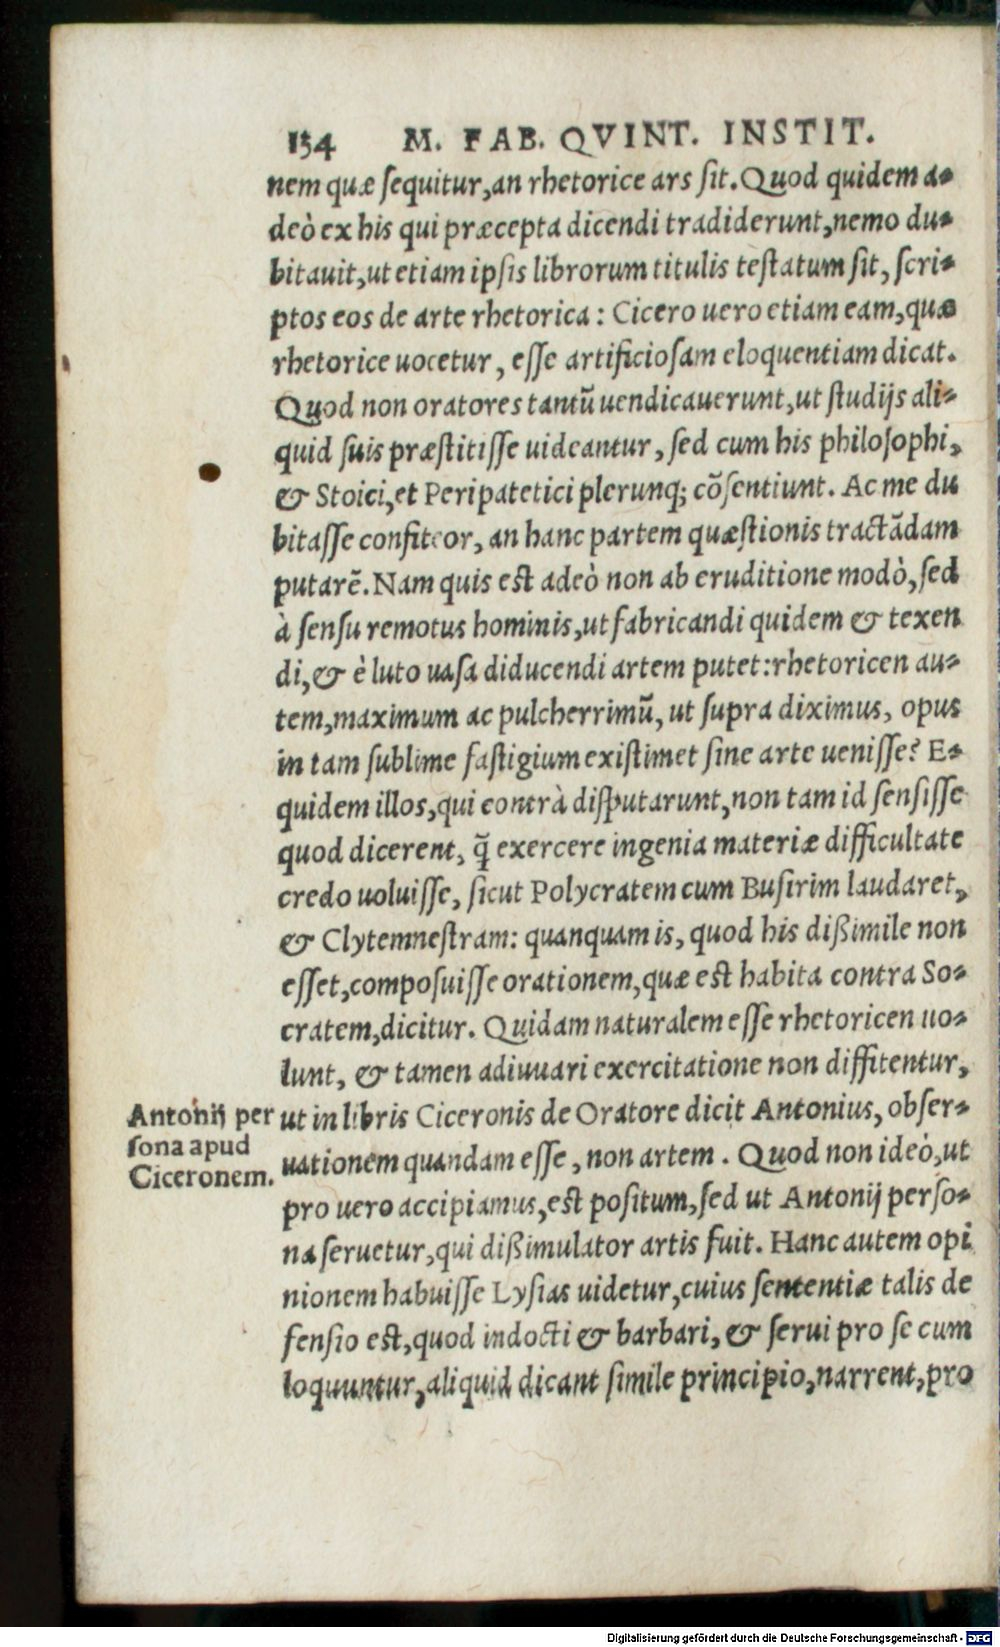 134 M. FAB. QVINT. INSTIT.
nem quæ ſequitur, an rhetorice ars ſit. Quod quidem a-
deò ex his qui præcepta dicendi tradiderunt, nemo du-
bitauit, ut etiam ipſis librorum titulis teſtatum ſit, ſcri-
ptos eos de arte rhetorica: Cicero uero etiam eam, quæ
rhetorice uocetur, eſſe artificioſam eloquentiam dicat.
Quod non oratores tantũ uendicauerunt, ut ſtudijs ali-
quid ſuis præſtitiſſe uideantur, ſed cum his philoſophi,
& Stoici, et Peripatetici plerunq; cõſentiunt. Ac me du
bitaſſe confiteor, an hanc partem quæſtionis tractãdam
putarẽ. Nam quis eſt adeò non ab eruditione modò, ſed
à ſenſu remotus hominis, ut fabricandi quidem & texen
di, & è luto uaſa diducendi artem putet: rhetoricen au-
tem, maximum ac pulcherrimũ, ut ſupra diximus, opus
in tam ſublime faſtigium exiſtimet ſine arte ueniſſe? E-
quidem illos, qui contrà diſputarunt, non tam id ſenſiſſe
quod dicerent, q̃ exercere ingenia materiæ difficultate
credo uoluiſſe, ſicut Polycratem cum Buſirim laudaret,
& Clytemneſtram: quanquam is, quod his dißimile non
eſſet, compoſuiſſe orationem, quæ eſt habita contra So-
cratem, dicitur. Quidam naturalem eſſe rhetoricen uo-
lunt, & tamen adiuuari exercitatione non diffitentur,
ut in libris Ciceronis de Oratore dicit Antonius, obſer-
uationem quandam eſſe, non artem. Quod non ideò, ut
pro uero accipiamus, eſt poſitum, ſed ut Antonij perſo-
na ſeruetur, qui dißimulator artis fuit. Hanc autem opi
nionem habuiſſe Lyſias uidetur, cuius ſententiæ talis de
fenſio eſt, quod indocti & barbari, & ſerui pro ſe cum
loquuntur, aliquid dicant ſimile principio, narrent, pro
Antonij per
ſona apud
Ciceronem.
Digitalisierung gefördert durch die Deutsche Forschungsgemeinschaft - DFG